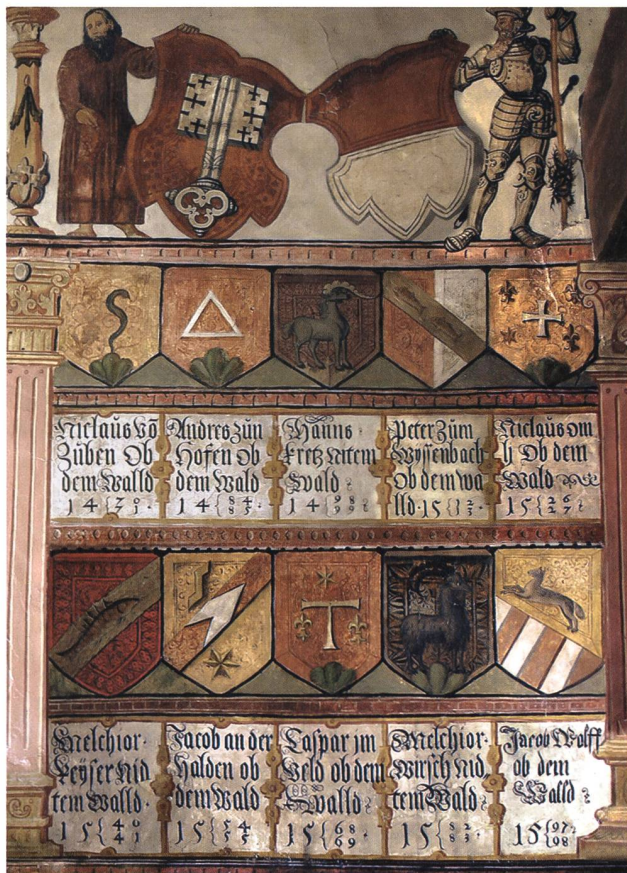 Niclaus võ
Zuben Ob
dem Walld
14{70/71
Andres zůn
Hofen Ob
dem Wald
14{84/85
Hanns
Fretz Nitem
Wald
14{98/99
Peter Zům
Wyssenbach
Ob dem wa
lld. 15{12/13
Niclaus om
li Ob dem
Wald
15{26/27
Melchior
Leÿser Nid
tem Walld.
15{40/41
Jacob an der
Halden ob
dem Wald
15{54/55
Caspar im
Veld ob dem
Walld
15{68/69
Melchior
Wirsch Nid
tem Wald
15{82/83
Jacob Wolff
ob dem
Walld
15{97/98